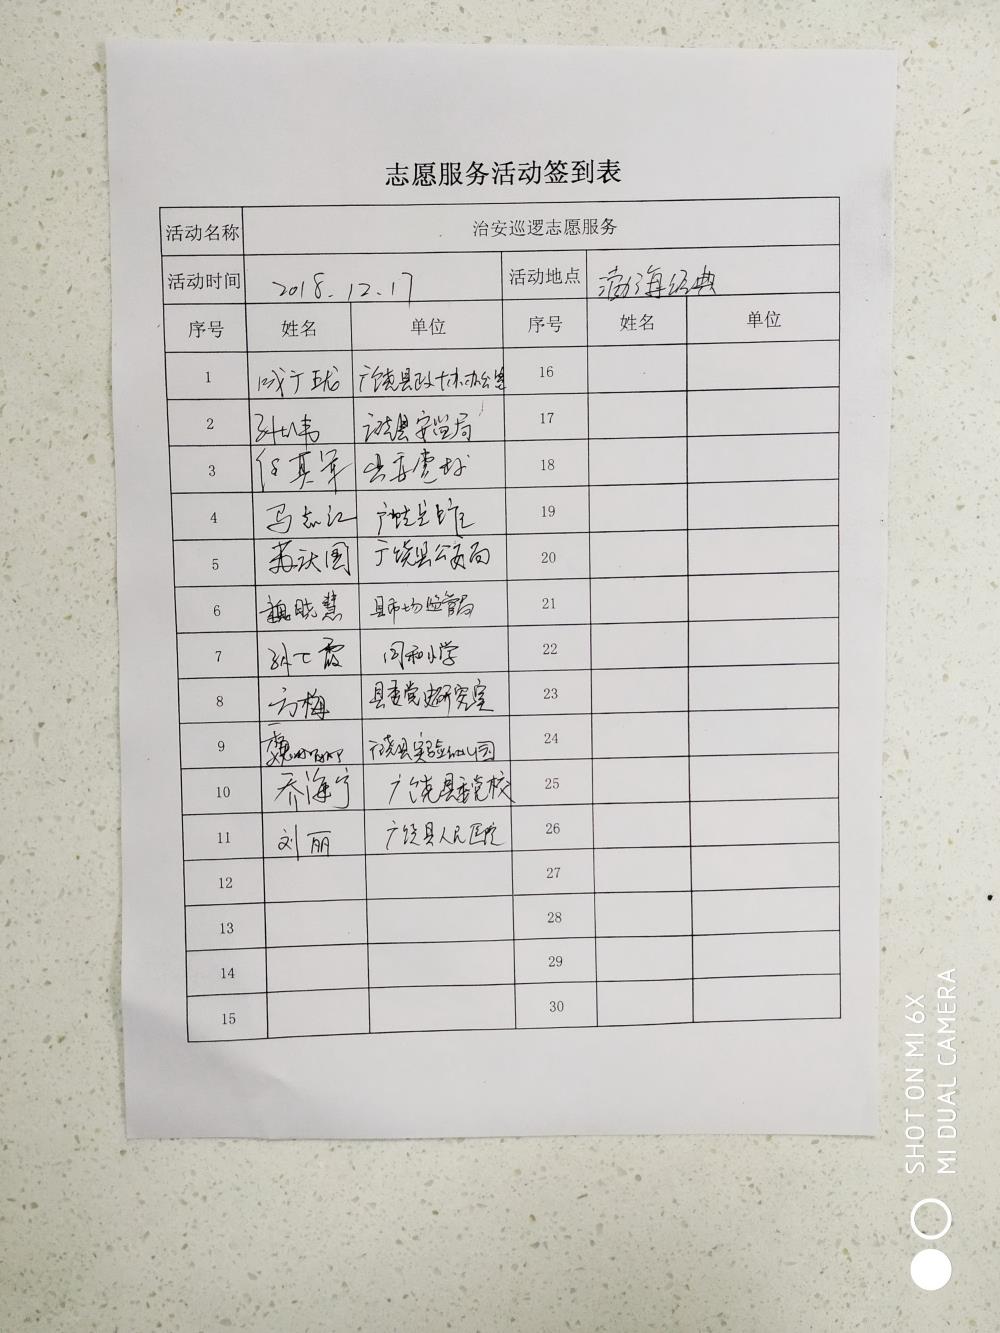 志愿服务活动签到表
活动名称 治安巡逻志愿服务
活动时间 2018.12.17 活动地点 渤海经典
序号 姓名 单位 序号 姓名 单位
1 广饶县政协办公室 16
2 孙 广饶县安监局 17
3 任英军 县委党校 18
4 马志江 19
5 苏沃国 广饶县公安局 20
6 魏晓慧 县市场监管局 21
7 孙七霞 同和小学 22
8 方梅 县委党史研究室 23
9 魏 广饶县实验幼儿园 24
10 乔海宁 广饶县委党校 25
11 刘丽 广饶县人民医院 26
12 27
13 28
14 29
15 30
SHOT ON MI 6X
MI DUAL CAMERA